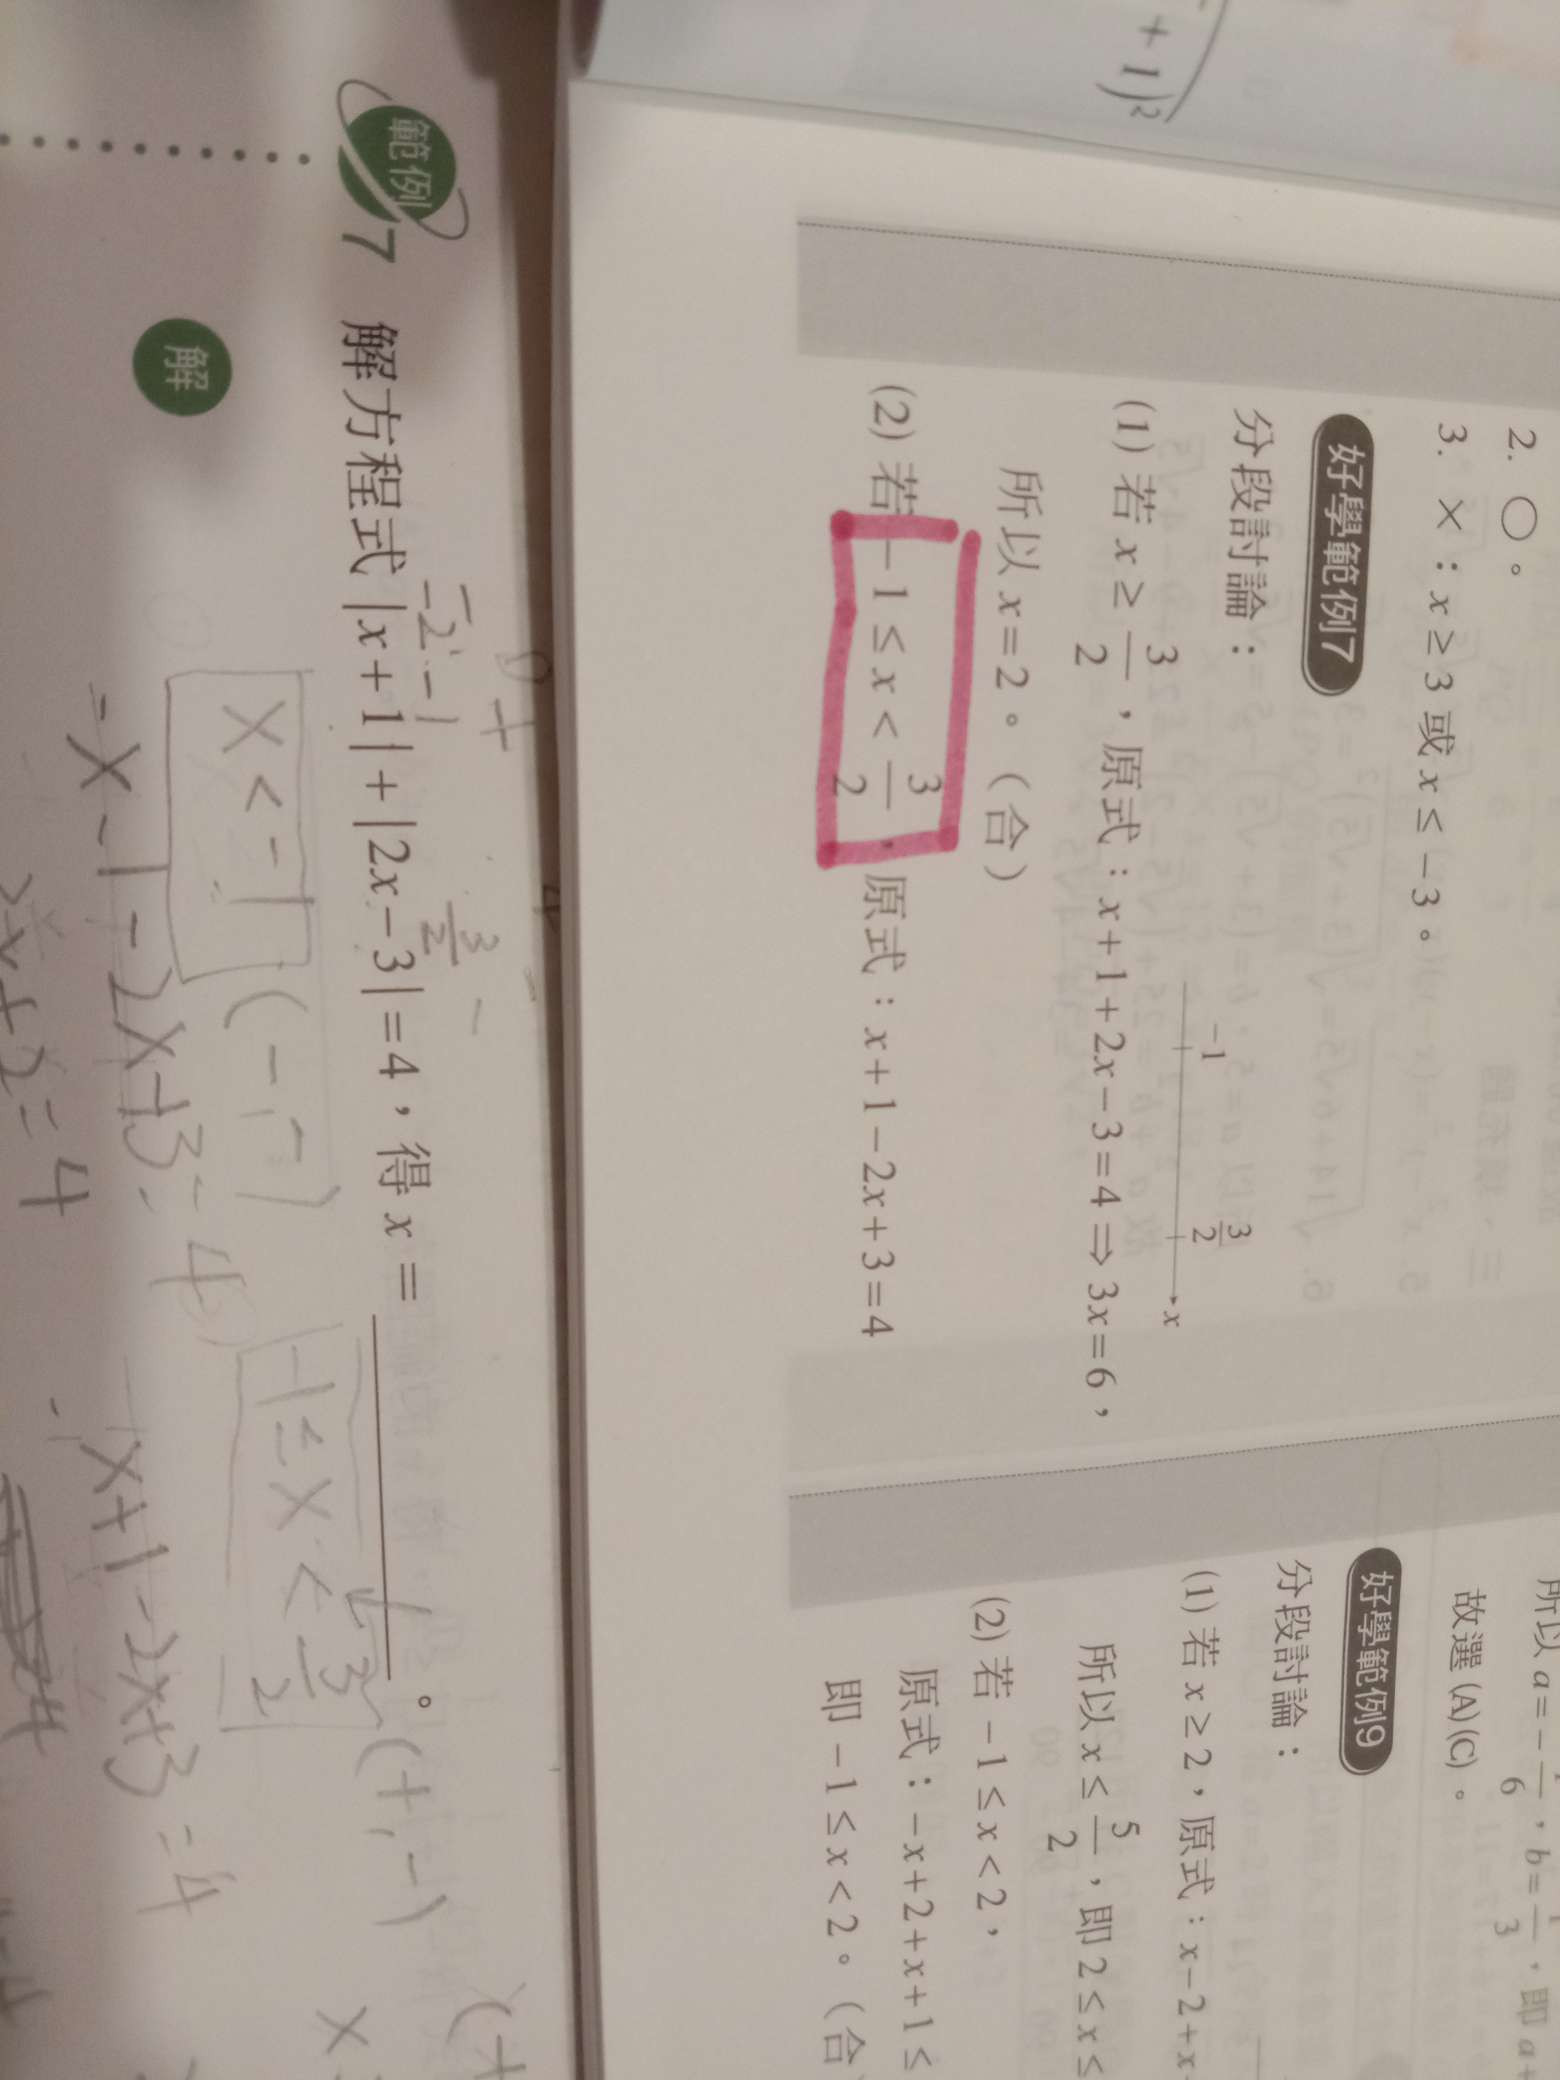 + 1)²
2. ○。
3. ×：x ≥ 3 或 x ≤ −3。
好學範例7
分段討論：
−1 3/2 x
(1) 若 x ≥ 3/2，原式：x + 1 + 2x − 3 = 4 ⇒ 3x = 6，
所以 x = 2。（合）
(2) 若 −1 ≤ x < 3/2，原式：x + 1 − 2x + 3 = 4
所以 a = −
6
，b =
3
，即 a +
故選 (A)(C)。
好學範例9
分段討論：
(1) 若 x ≥ 2，原式：x − 2 + x
所以 x ≤ 5/2，即 2 ≤ x ≤
(2) 若 −1 ≤ x < 2，
原式：−x + 2 + x + 1 ≤
即 −1 ≤ x < 2。（合
範例 7 解方程式 |x + 1| + |2x − 3| = 4，得 x = ＿＿＿。
3/2
解
x < −1
−1 ≤ x < 3/2 (+, −)
−x − 1 − 2x + 3 = 4
x + 1 − 2x + 3 = 4
x + 2 = 4